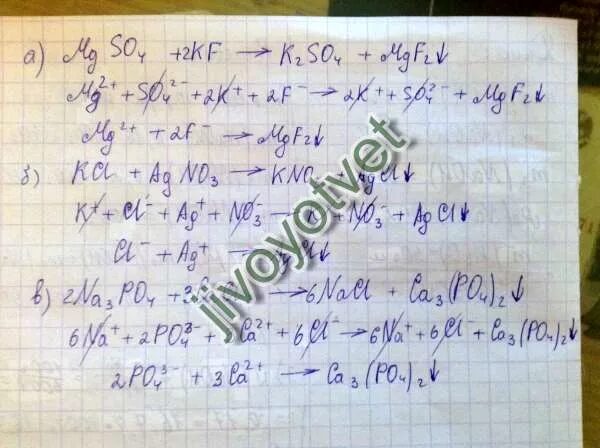 а) MgSO₄ + 2KF → K₂SO₄ + MgF₂↓
Mg²⁺ + SO₄²⁻ + 2K⁺ + 2F⁻ → 2K⁺ + SO₄²⁻ + MgF₂↓
Mg²⁺ + 2F⁻ → MgF₂↓
б) KCl + AgNO₃ → KNO₃ + AgCl↓
K⁺ + Cl⁻ + Ag⁺ + NO₃⁻ → K⁺ + NO₃⁻ + AgCl↓
Cl⁻ + Ag⁺ → AgCl↓
в) 2Na₃PO₄ + 3 → 6NaCl + Ca₃(PO₄)₂↓
6Na⁺ + 2PO₄³⁻ + 3Ca²⁺ + 6Cl⁻ → 6Na⁺ + 6Cl⁻ + Ca₃(PO₄)₂↓
2PO₄³⁻ + 3Ca²⁺ → Ca₃(PO₄)₂↓
jivoyotvet